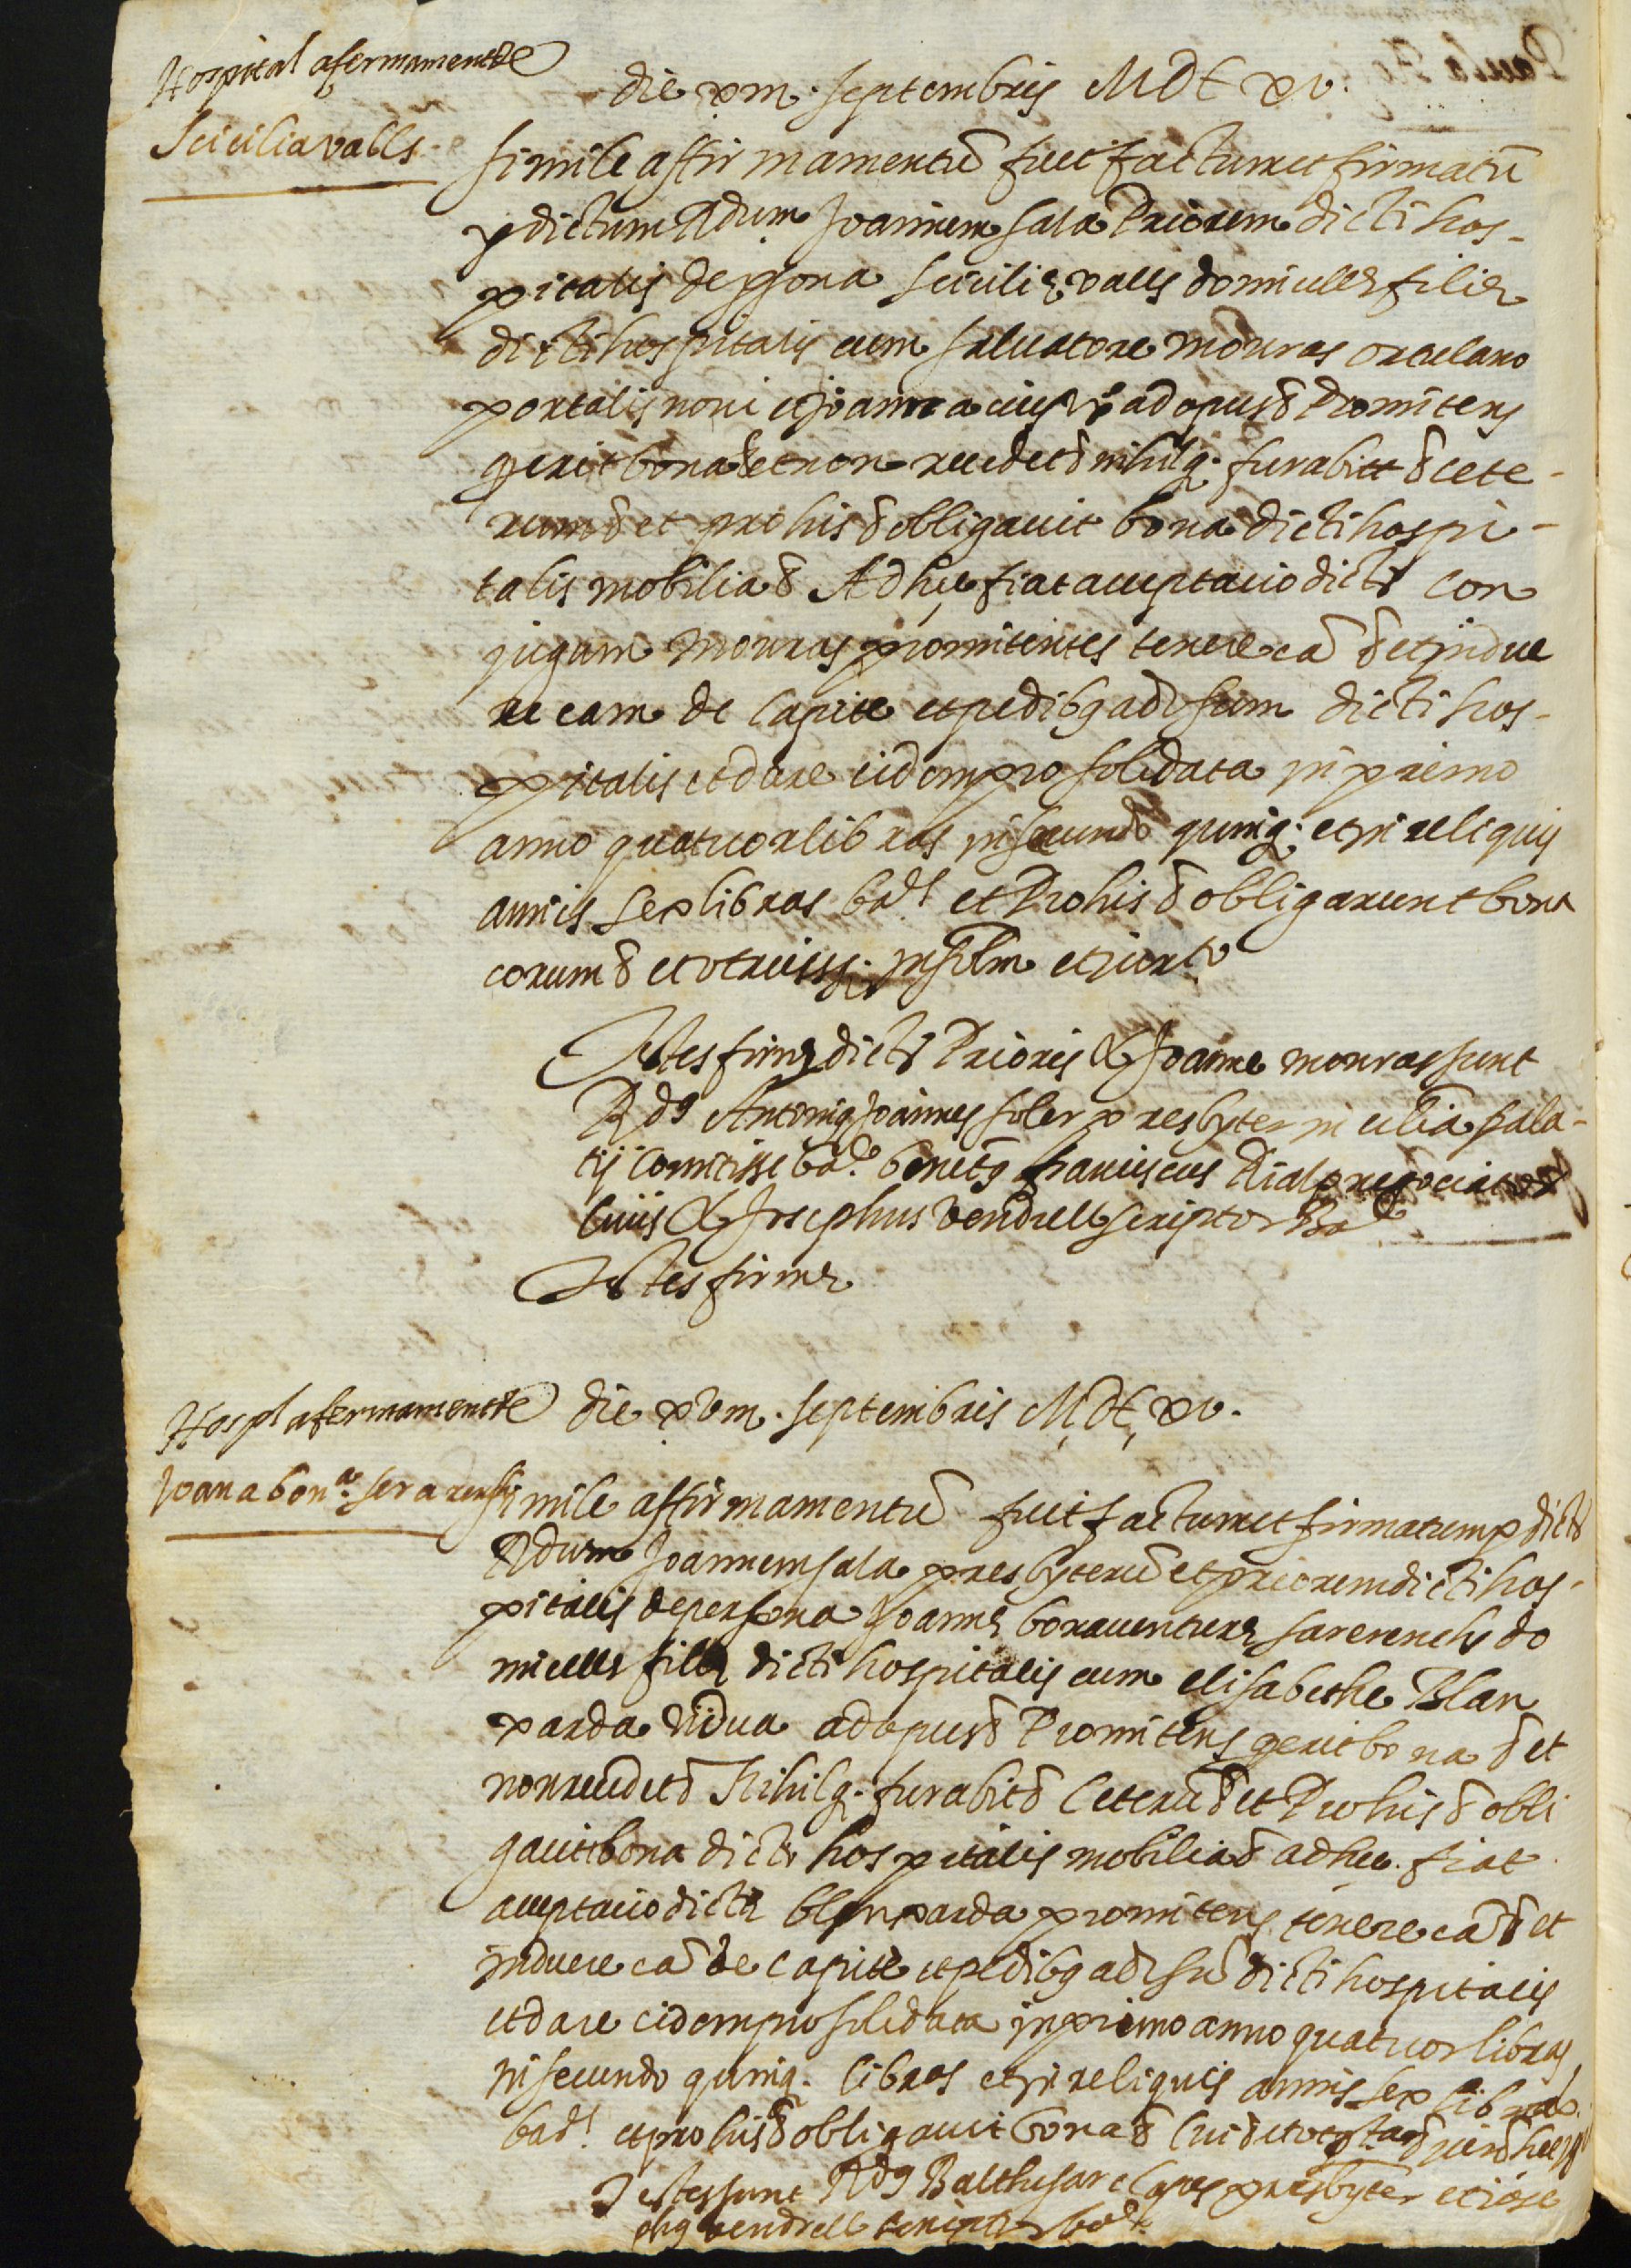 Hospital afermament de
Sicilia valls
die xiii septembris MDC xv.
simile affirmamentū fuit factum et firmatū
p dictum Rdum Joannem sala Priorem dicti hos-
pitalis de psona sicilie valls domicelle filie
dicti hospitalis cum salvatore mouras ortulano
portalis noui et Joanna eius vx ad opus & Promitens
q erit bona & et non recedet & nihilq. furabitt & cete-
rum & et pro his & obligauit bona dicti hospi-
talis mobilia & Ad hec fiat acceptatio dictor con
jugum mouras promitentes tenere eā & et indue
re eam de capite et pedibq ad vsum dicti hos-
pitalis et dare eidem pro solidata in primo
anno quatuor libras in secundo quinq. et in reliquis
annis sex libras bar et Pro his & obligarunt bona
eorum & et vtriusq. insolm et jurt
Testes firme dicti Prioris & Joanne mouras sunt
Rds Antoniq Joannes soler presbyter in eclia pala-
tij Comitisse bar benets franciscus Rialp negociator
ciuis & Josephus vendrell scriptor Bar
Testes firme
Hospl afermament de
Joana bona. serarensh
die xvm. septembris MDC, xv.
simile affirmamentū fuit factum et firmatum p dictū
Rdum Joannem sala presbyterū et priorem dicti hos-
pitalis de persona Joanne bonauenture sarerencha do
micelle filie dicti hospitalis cum elisabethe Blan
xarda vidua ad opus & Promitens q erit bona & et
non recedet & Nihilq. furabit & Ceterū & et Pro his & obli
gauit bona dicti hospitalis mobilia & ad hec fiat
acceptatio dicta blanxarda promitens tenere eā & et
induere eā de capite et pedibq ad vsū dicti hospitalis
et dare eidem pro solidata in primo anno quatuor libras
in secundo quinq. libras et in reliquis annis sex libras
bar. et pro his & obligauit bona &
Testes sunt Rdq Balthesar presbyter et iose
phq vendrell scriptor bar